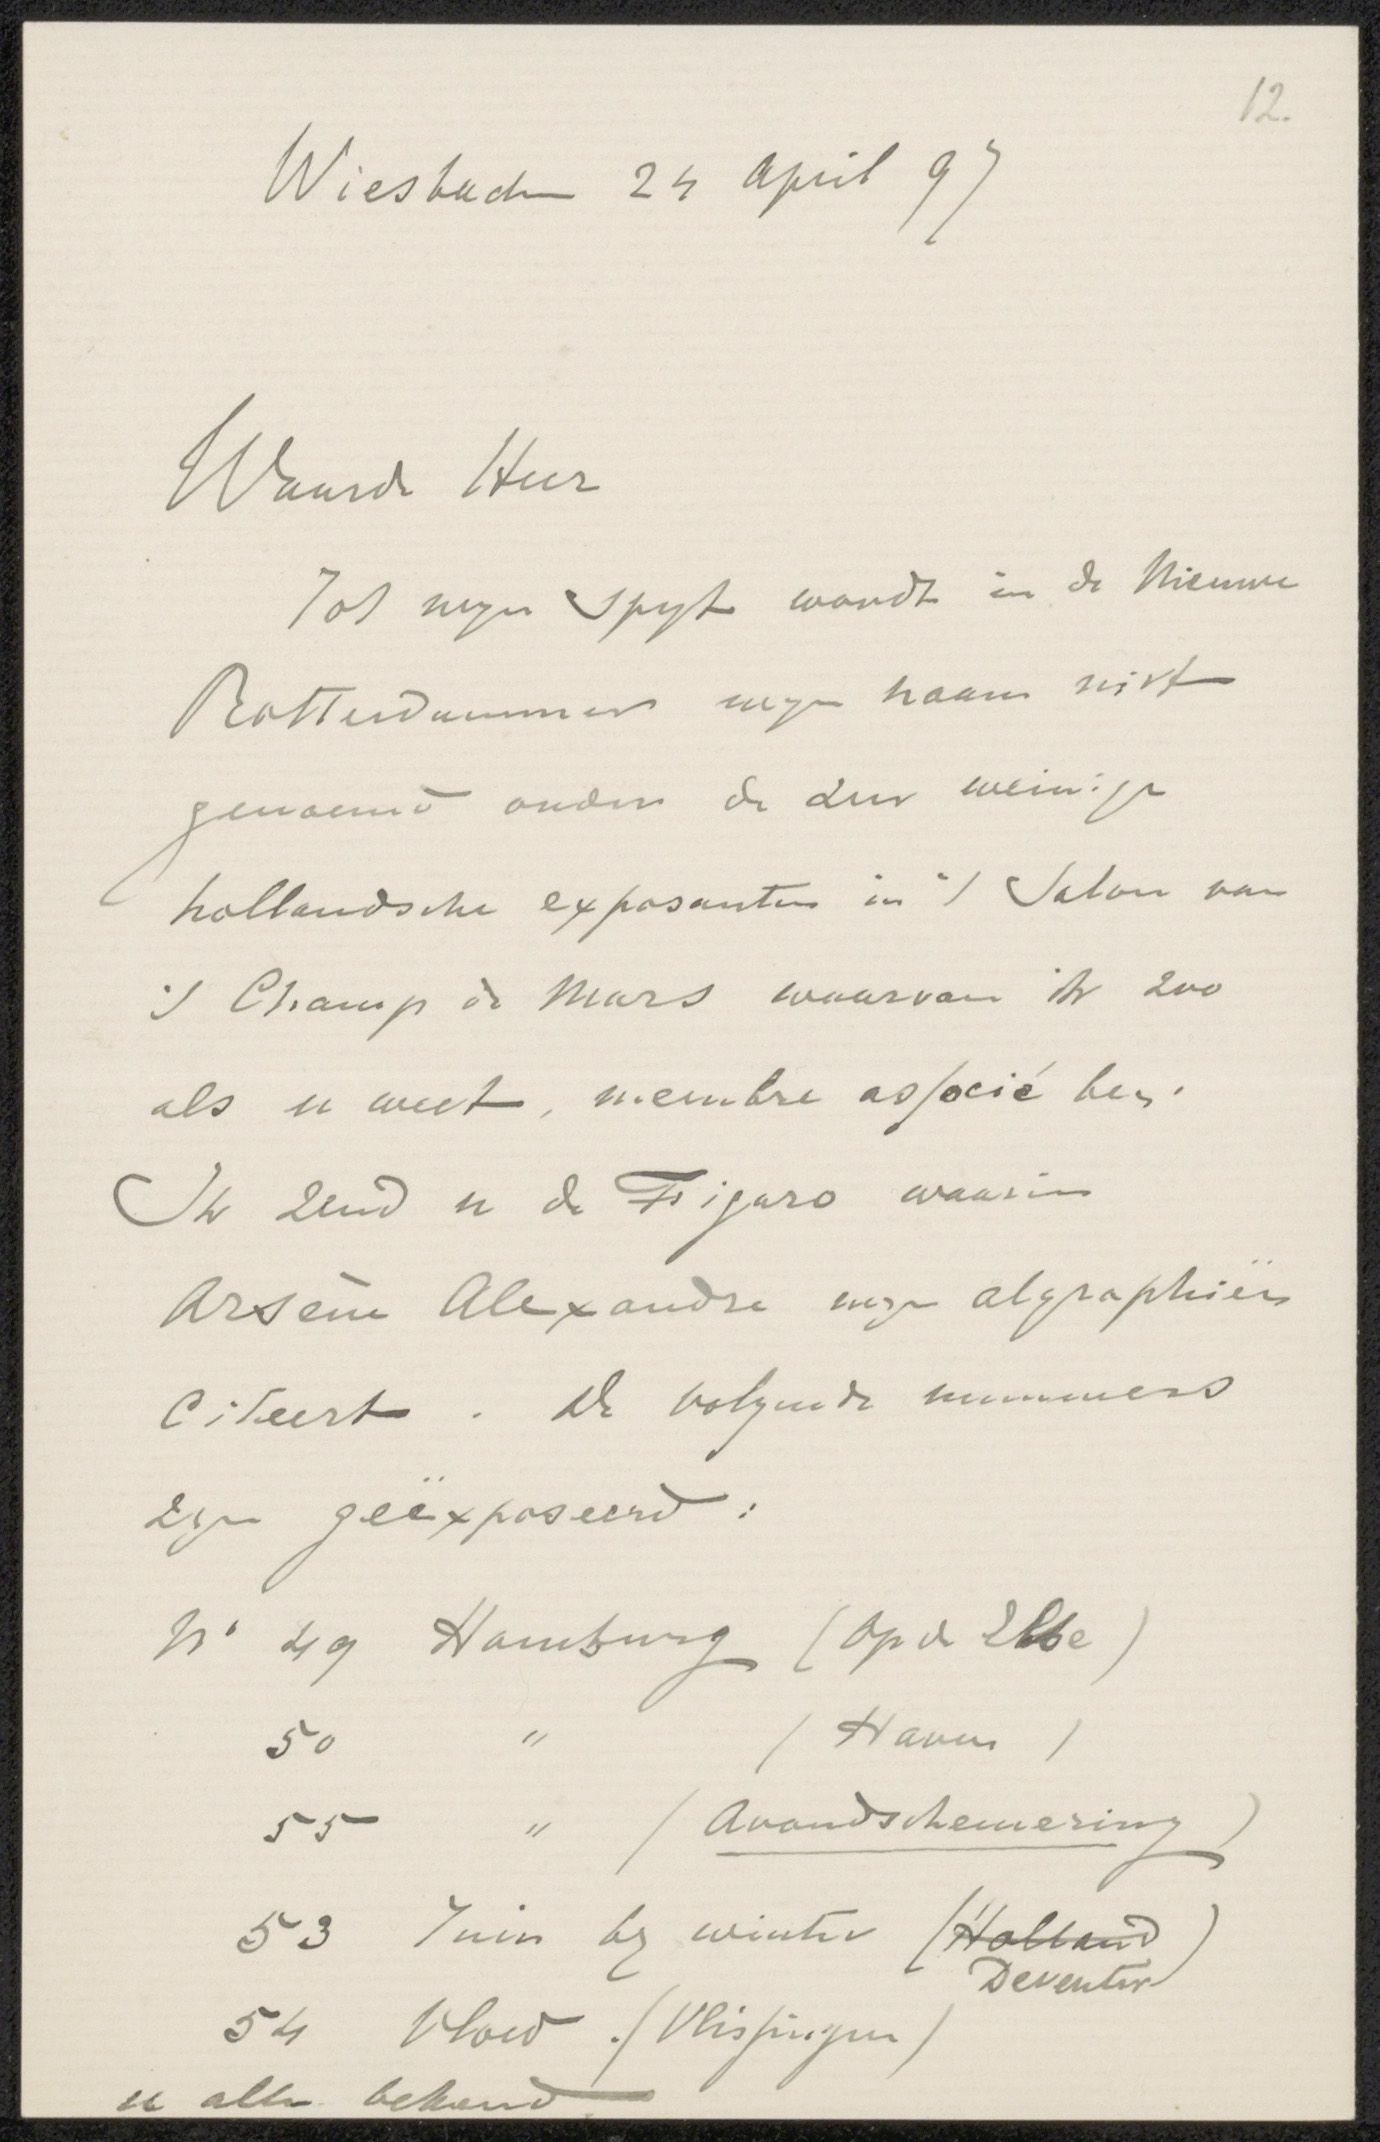 12.
Wiesbaden 24 April 97
Waarde Heer
Tot mijn spijt wordt in de Nieuwe
Rotterdammer mijn naam niet
genoemd onder de zeer weinige
hollandsche exposanten in 't Salon van
't Champ de Mars waarvan ik zoo
als u weet, membre associé ben.
Ik zend u de Figaro waarin
Arsène Alexandre mijn algraphiën
citeert. De volgende nummers
zijn geëxposeerd:
No 49 Hamburg (op de Elbe)
50 " (Haven)
55 " (Avondschemering)
53 Tuin bij winter (Holland)
Deventer
54 Vloed (Vlissingen)
u allen bekend.